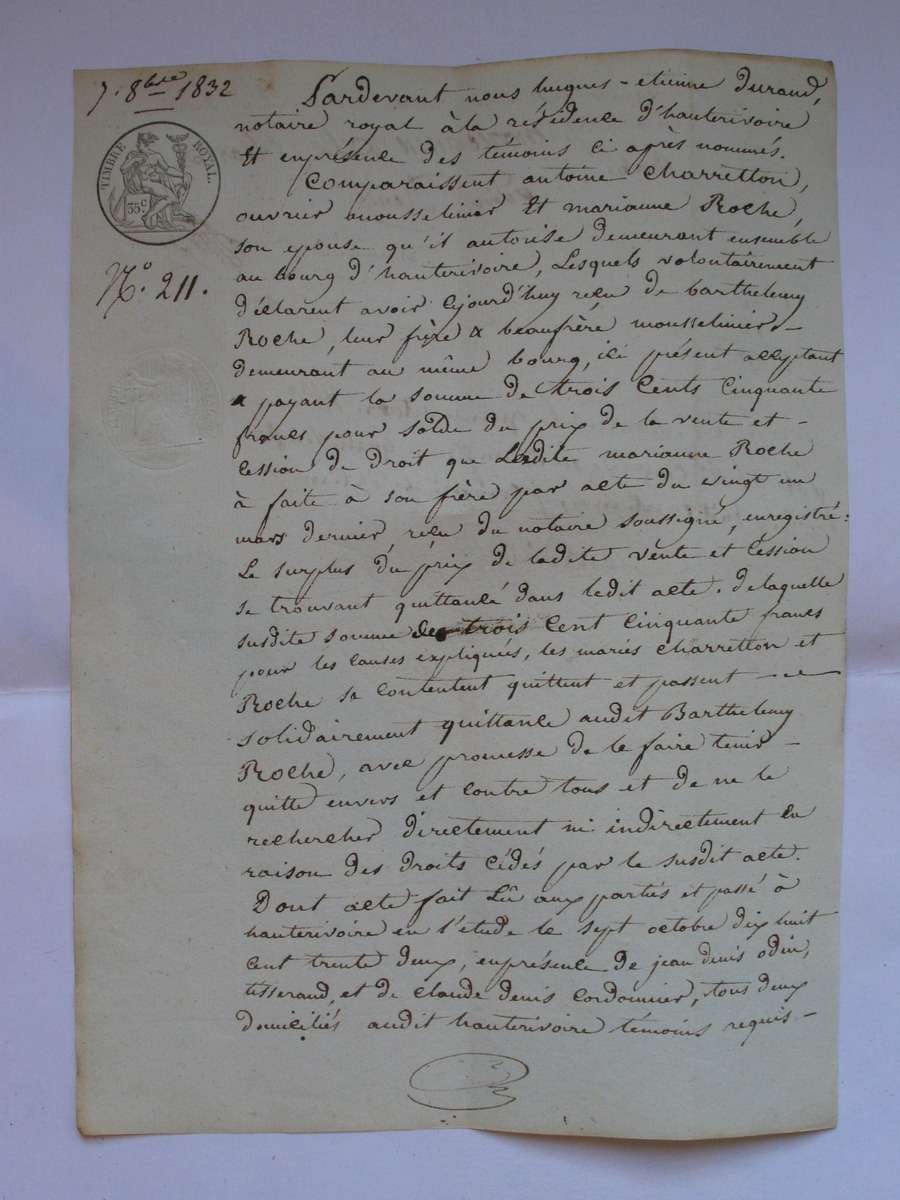 7. 8bre 1832
TIMBRE ROYAL.
35c
No. 211.
Pardevant nous hugues-etienne Durand,
notaire royal à la résidence d'hauterivoire
Et en présence des témoins ci après nommés.
Comparaissent antoine Charretton,
ouvrier mousselinier Et marianne Roche,
son epouse qu'il autorise demeurant ensemble
au bourg d'hauterivoire, Lesquels volontairement
déclarent avoir cejourd'huy reçu de barthelemy
Roche, leur frère & beaufrère mousselinier –
demeurant au même bourg, ici présent acceptant
& payant la somme de trois Cents Cinquante
francs pour solde du prix de la vente et –
Cession de droit que Ladite marianne Roche
à faite à son frère par acte du vingt un
mars dernier, reçu du notaire soussigné, enregistré:
Le surplus du prix de ladite vente et Cession
se trouvant quittancé dans ledit acte. de laquelle
susdite somme de trois Cent Cinquante francs
pour les Causes expliquées, les mariés Charretton et
Roche se Contentent quittent et passent –
solidairement quittance audit Barthelemy
Roche, avec promesse de le faire tenir –
quitte envers et Contre tous et de ne le
rechercher directement ni indirectement en
raison des droits Cédés par le susdit acte.
Dont acte fait Lû aux parties et passé à
hauterivoire en l'etude le sept octobre dix huit
Cent trente deux, en présence de jean denis odin,
tisserand, et de Claude denis Cordonnier, tous deux
domiciliés audit hauterivoire témoins requis –